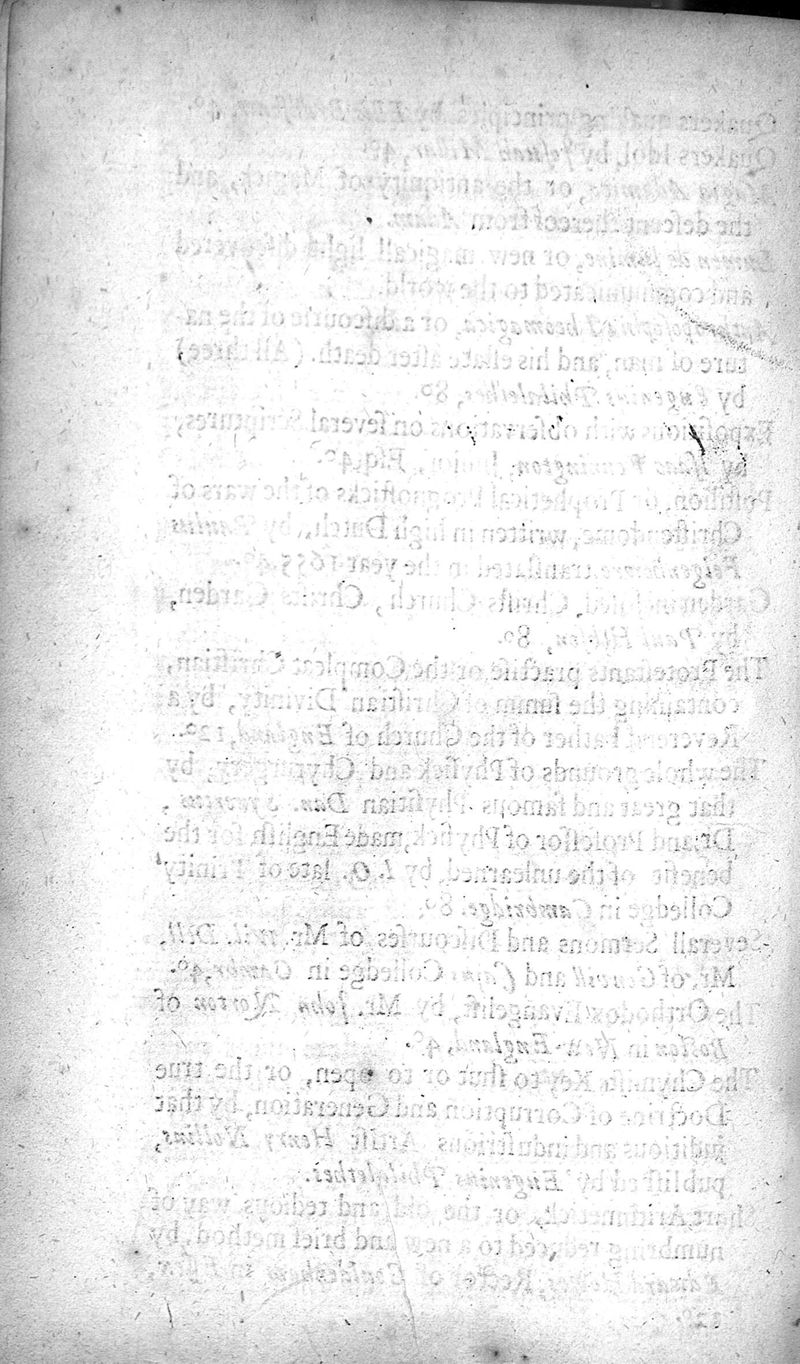 Quakers quaking principles, by Ellis Bradshaw, 4°.
Quakers Idol, by Joſhuah Miller, 4°.
Magia Adamica, or the antiquity of Magick, and
the deſcent thereof from Adam.
Lumen de lumine, or new magicall light diſcovered
and communicated to the world.
Anthropoſophia Theomagica, or a diſcourſe of the na-
ture of man, and his eſtate after death. (All three)
by Eugenius Philalethes, 8°.
Expoſitions with obſervations on ſeveral Scriptures,
by Iſaac Pennington, Junior, Eſq; 4°.
Poſtilion, or Prophetical Prognoſticks of the wars of
Chriſtendome, written in high Dutch, by Paulus
Felgenhore tranſlated in the year 1655. 4°.
Garden incloſed, Chriſts Church, Chriſts Garden,
by Paul Hobſon, 8°.
The Proteſtants practiſe or the Compleat Chriſtian,
containing the ſumm of Chriſtian Divinity, by a
Reverend Father of the Church of England, 12°.
The whole grounds of Phyſick and Chyrurgery, by
that great and famous Phyſitian Dan.
Dr. and Profeſſor of Phyſick, made Engliſh for the
benefit of the unlearned, by I. O. late of Trinity
Colledge in Cambridge. 8°.
Severall Sermons and Diſcourſes of Mr. Will. Dell,
Mr. of Gonvill and Caius Colledge in Cambr. 4°.
The Orthodox Evangeliſt, by Mr. John Norton of
Boſton in New-England, 4°.
The Chymiſts Key to ſhut or to open, or the true
Doctrine of Corruption and Generation, by that
juditious and induſtrious Artiſt Henry Nollius,
publiſhed by Eugenius Philalethes.
Short Arithmetick, or the old and tedious way of
numbring reduced to a new and brief method, by
Edward Rector of in Eſſex,
12°.